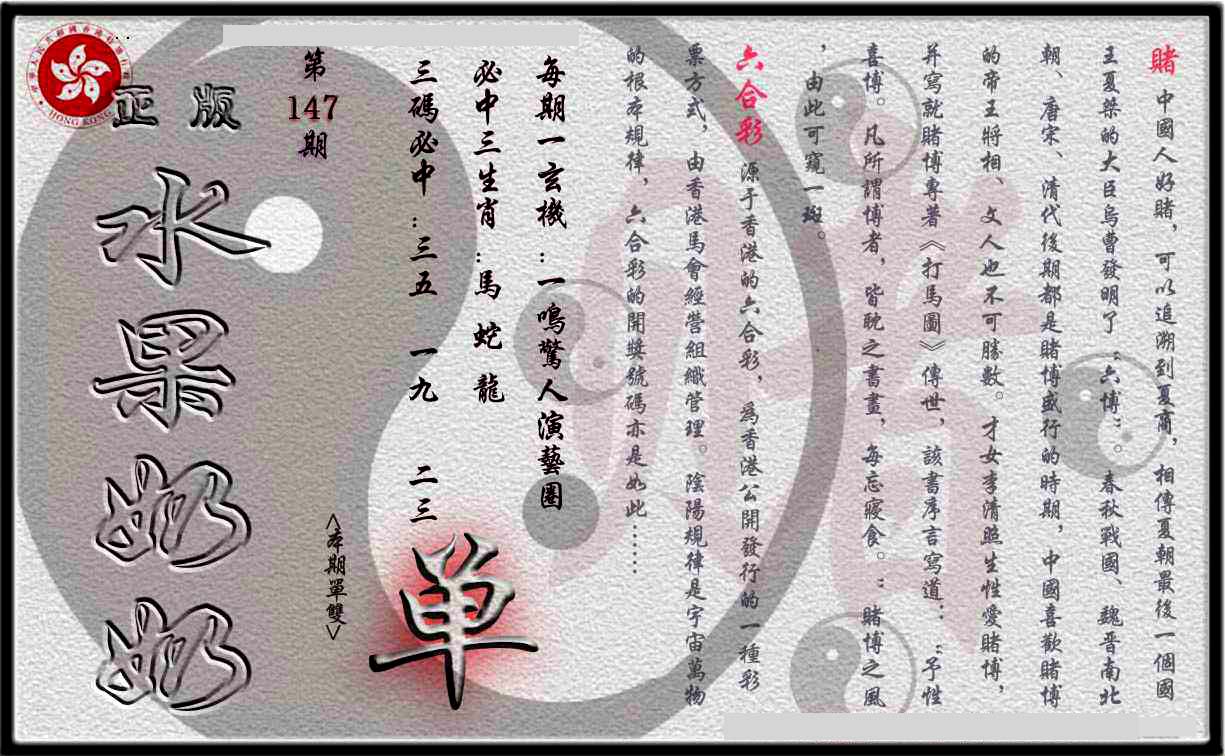 賭 中國人好賭，可以追溯到夏商，相傳夏朝最後一個國
王夏桀的大臣烏曹發明了“六博”。春秋戰國、魏晋南北
朝、唐宋、清代後期都是賭博盛行的時期，中國喜歡賭博
的帝王將相、文人也不可勝數。才女李清照生性愛賭博，
并寫就賭博專著《打馬圖》傳世，該書序言寫道：“予性
喜博。凡所謂博者，皆耽之書畫，每忘寢食。”賭博之風
，由此可窺一斑。
六合彩 源于香港的六合彩，爲香港公開發行的一種彩
票方式，由香港馬會經營組織管理。陰陽規律是宇宙萬物
的根本規律，六合彩的開獎號碼亦是如此……
每期一玄機：一鳴驚人演藝圈
必中三生肖：馬 蛇 龍
三碼必中：三五 一九 二三
单
<本期單雙>
第147期
正版
水果奶奶
HONG KONG